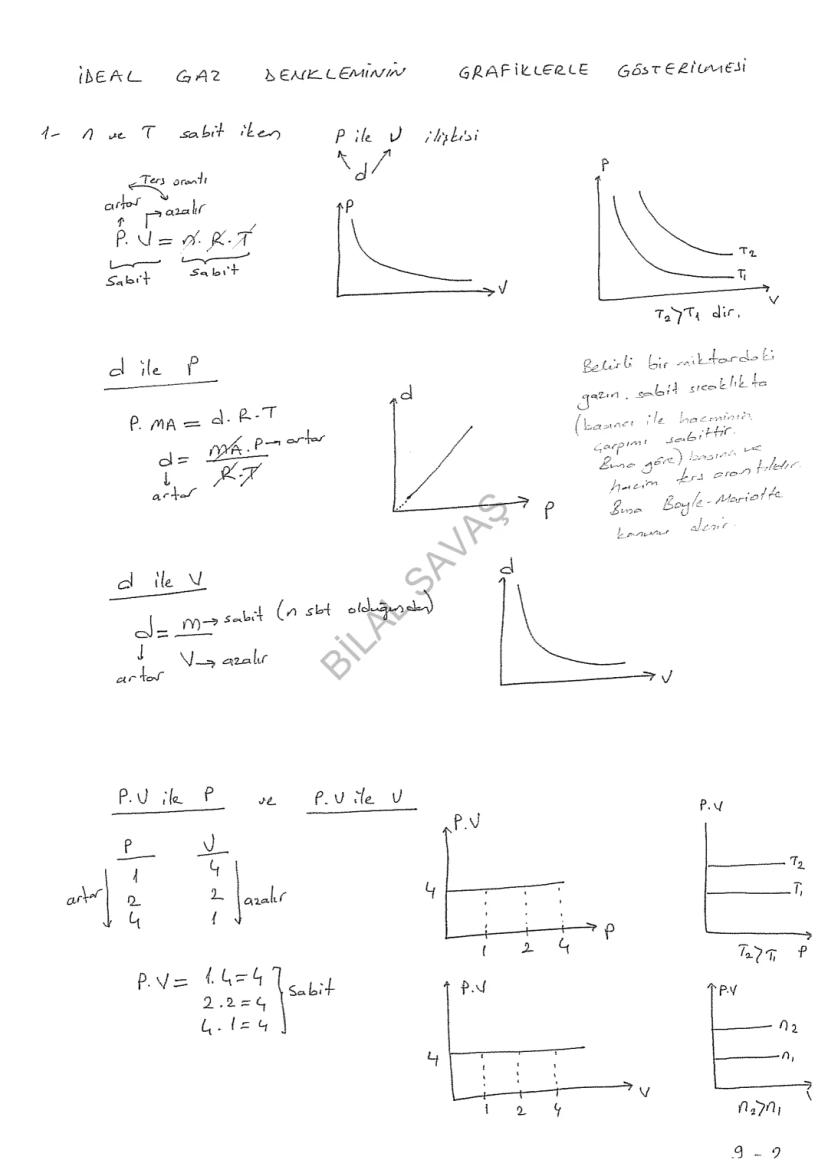 İDEAL GAZ DENKLEMİNİN GRAFİKLERLE GÖSTERİLMESİ
1- n ve T sabit iken P ile V ilişkisi
d
Ters orantı
artar
azalır
P.V = n.R.T
Sabit Sabit
P
V
P
T2
T1
V
T2>T1 dir.
d ile P
P.MA = d.R.T
d = MA.P → artar
R.T
artar
d
P
Belirli bir miktardaki
gazın, sabit sıcaklıkta
(basıncı ile hacminin
çarpımı sabittir.
Buna göre) basınç ve
hacim ters orantılıdır.
Buna Boyle-Mariotte
kanunu denir.
BİLAL SAVAŞ
d ile V
d = m → sabit (n sbt olduğundan)
V → azalır
artar
d
V
P.V ile P ve P.V ile V
P V
1 4
artar 2 2 azalır
4 1
P.V = 1.4=4
2.2=4
4.1=4
Sabit
P.V
4
1 2 4
P
P.V
T2
T1
T2>T1 P
P.V
4
1 2 4
V
P.V
n2
n1
n2>n1
9-2